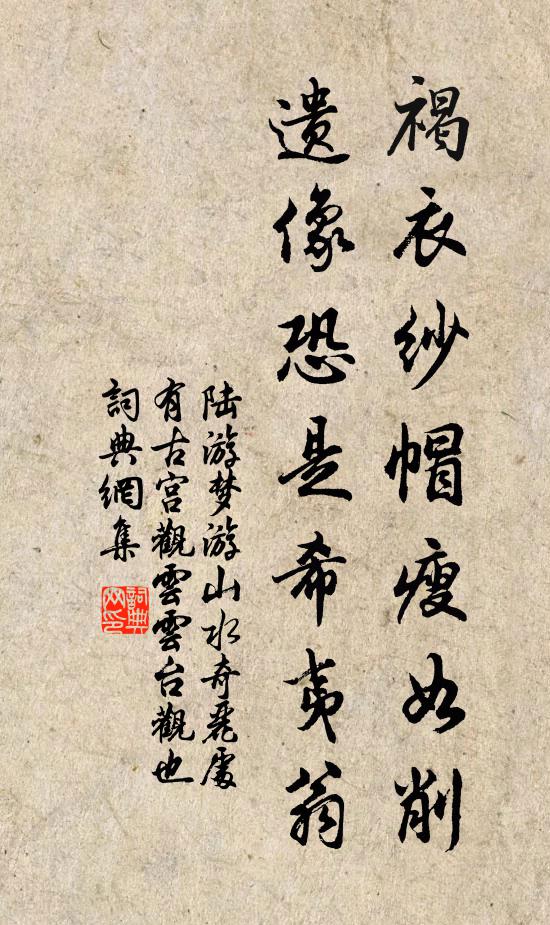 褐衣纱帽瘦如削
遗像恐是希夷翁
陆游梦游山水奇丽處
有古宫觀雲雲台觀也
詞典網集
詞典网印